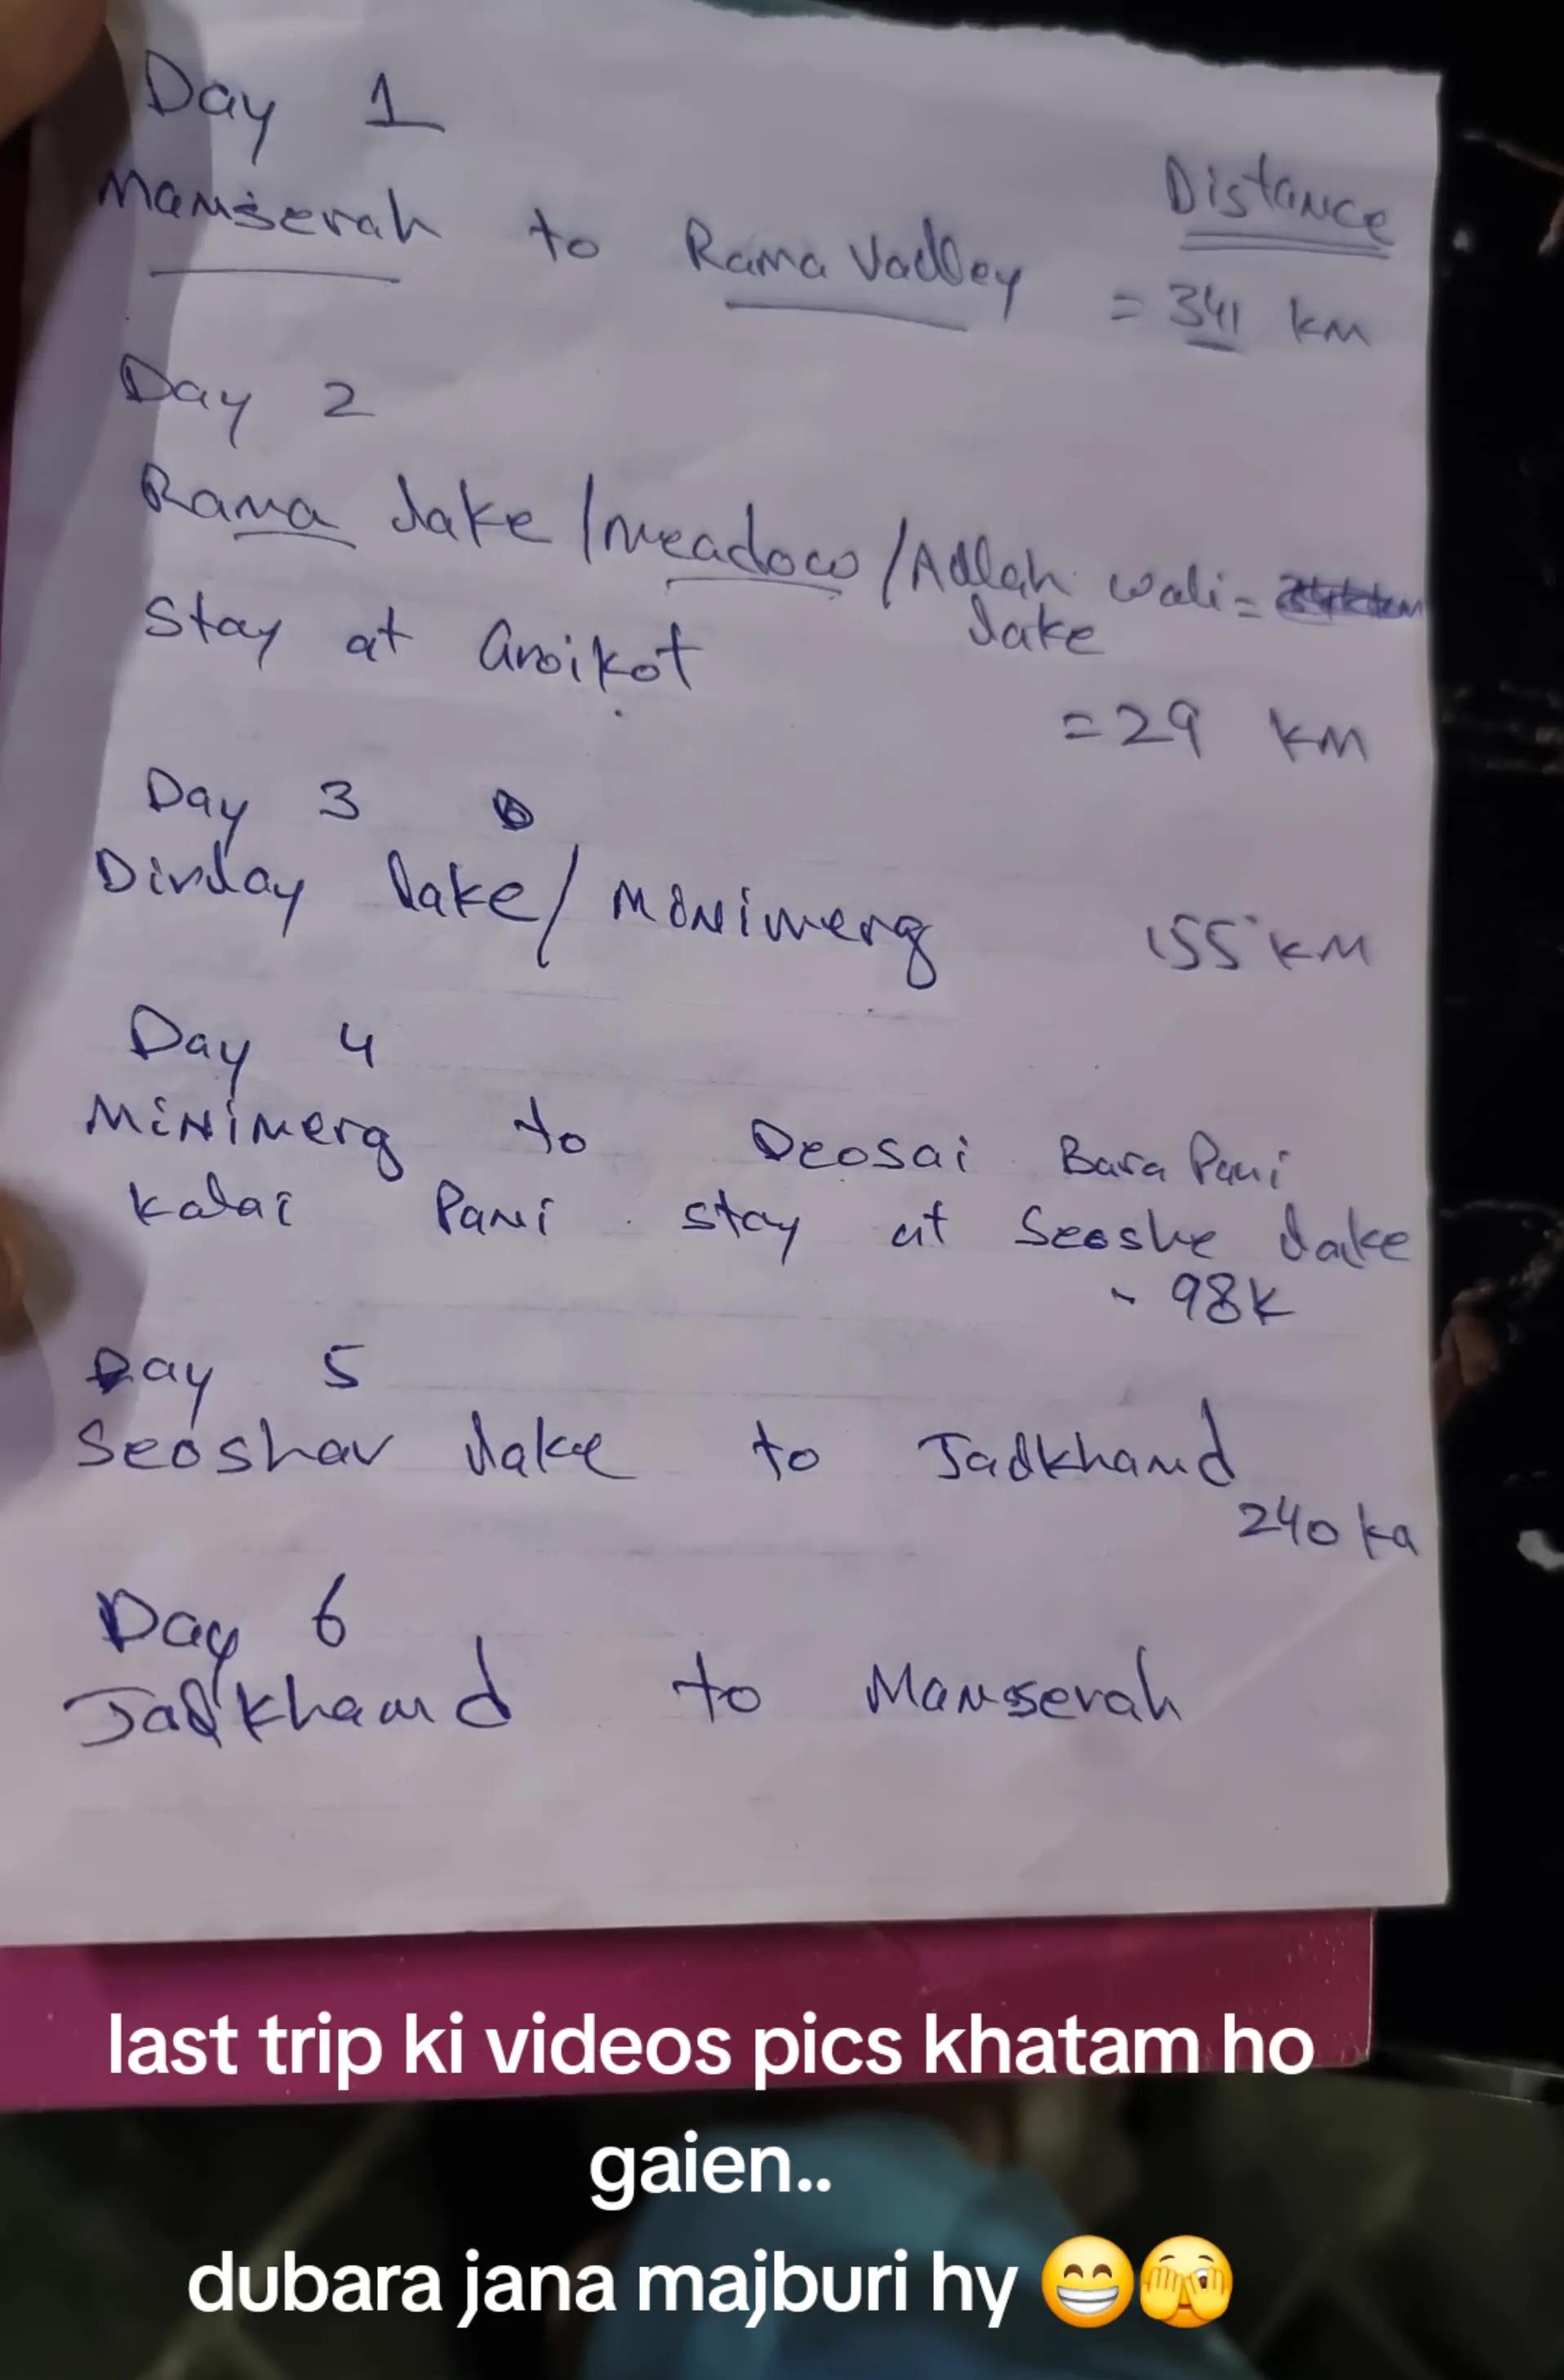 Day 1
Distance
Manserah to Rama Valley = 341 km
Day 2
Rama Lake / meadow / Allah wali =
Lake
Stay at Goikot
= 29 km
Day 3
Dirlay lake / Minimerg 155 km
Day 4
Minimerg to Deosai Bara Pani
Kalai Pani stay at Seoshe Lake
- 98k
Day 5
Seoshar Lake to Jalkhand
240 ka
Day 6
Jalkhand to Mansserah
last trip ki videos pics khatam ho
gaien..
dubara jana majburi hy 😁🫣